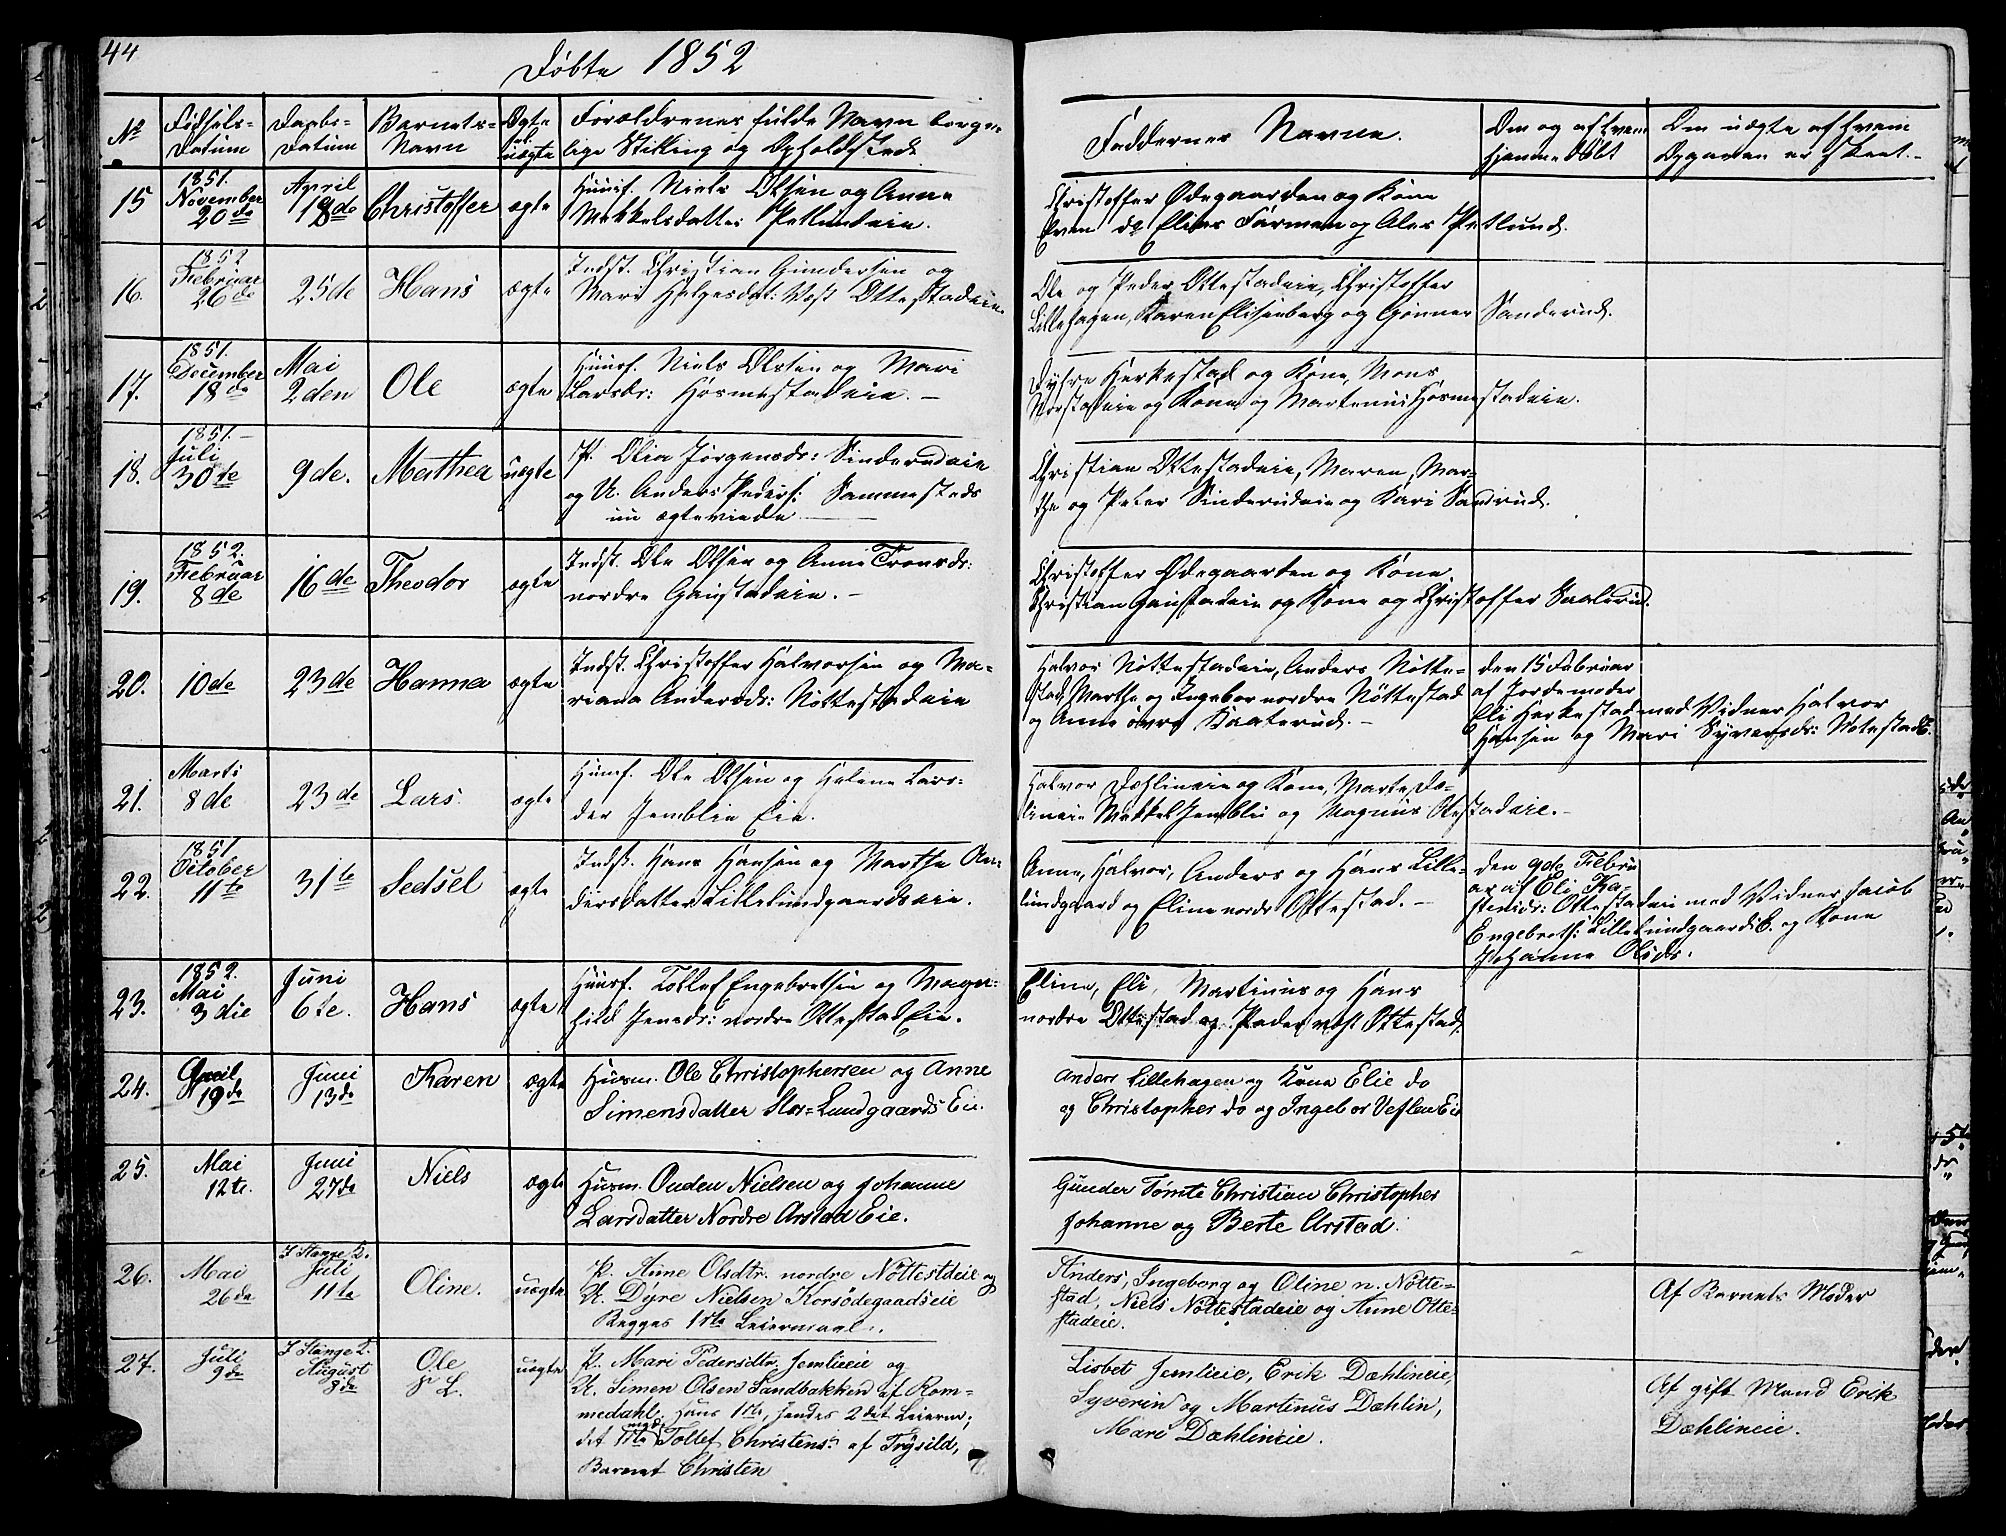 44
Døbte 1852
No
Fødsels-
Datum
Daabs-
Datum
Barnets-
Navn
Ægte
el.
uægte
Forældrenes fulde Navn borger-
lige Stilling og Opholdssted.
Faddernes Navne.
Om og af hvem
hjemmedøbt
Om uægte af hvem
Opgaven er skeet.
15
1851.
November
20de
April
18de
Christoffer
ægte
Huusf. Niels Olsen og Anne
Mekkelsdatter Petlundeie.
Christoffer Ødegaarden og Kone
Even do Elias Farmen og Ales Petlund.
16.
1852
Februar
26de
25de
Hans
ægte
Indst. Christian Gundersen og
Mari Helgesdat: Vest Ottestadeie.
Ole og Peder Ottestadeie, Christoffer
Lillehagen, Karen Elisenberg og Gønner Sanderud.
17.
1851.
December
18de
Mai
2den
Ole
ægte
Huusf. Niels Olsen og Mari
Larsdr: Horsmestadeie. -
Dyhre Herkestad og Kone, Mons
Norstadeie og Kone og Martenus Horsmestadeie.
18.
1851.-
Juli
30te
9de.
Mathea
uægte
P. Olia Jørgensdr: Sinderudeie
og U. Anders Peders: Sammesteds
nu ægteviede
Christian Ottestadeie, Maren, Mar-
the og Peter Sinderudeie og Kari Sandrud.
19.
1852.
Februar
8de
16de
Theodor
ægte
Indst. Ole Olsen og Anne Tronsdr:
nordre Gaustadeie. -
Christoffer Ødegaarden og Kone
Christian Gaustadeie og Kone og Christoffer Saalerud.
20.
10de
23de
Hanna
ægte
Indst. Christoffer Halvorsen og Ma-
riana Andersdr: Nøttestadeie
Halvor Nøttestadeie, Anders Nøtte-
stad, Marthe og Ingebor nordre Nøttestad
og Anne øvre Saaterud. -
den 15 Februar
af Jordemoder
Eli Herkestad med Vidner Halvor
Hansen og Mari Syversdr: NøtestadE.
21.
Marts
8de
23de
Lars
ægte
Huusf. Ole Olsen og Helene Lars-
der Jemblie Eie.
Halvor Dæhlineie og Kone, Marte Dæ-
lineie Mekkel Jembli og Magnus Otestadeie. -
22.
1851
October
11te
31te
Sedsel
ægte
Indst. Hans Hansen og Marthe An-
dersdatter Lillelundgaardseie.
Anne, Halvor, Anders og Hans Lille-
lundgaard og Eline nordr Ottestad. -
den 9de Febru
ar af Eli Ka-
stensdr: Ottestadeie med Vidner Jacob
Engebrets: LillelundgaardsE. og Kone
Johanne Olsdr.
23.
1852.
Mai
3die
Juni
6te.
Hans
ægte
Huusf. Tollef Engebretsen og Magn-
hild Jensdr: nordre Ottestad Eie.
Eline, Eli, Martinus og Hans
nordre Ottestad og Peder vest Ottestad.
24.
April
19de
Juni
13de
Karen
ægte
Husm. Ole Christophersen og Anne
Simensdatter Stor=Lundgaards Eie.
Anders Lillehagen og Kone Elie do
og Christopher do og Ingebor Veflen Eie
25.
Mai
12te.
Juni
27de
Niels
ægte
Husm. Ouden Nielsen og Johanne
Larsdatter Nordre Arstad Eie.
Gunder Tømte Christian Christopher
Johanne og Berte Arstad.
26.
Mai
26de
I Stange K.
Juli
11te
Oline.
uægte
P. Anne Olsdtr. nordre Nøttestdeie og
U. Dyre Nielsen Korsødegaadseie
Begges 1ste Leiermaal.
Anders, Ingeborg og Oline n. Nøtte-
stad, Niels Nøttestadeie og Anne Otte-
stadeie.
Af Barnets Moder
27.
Juli
9de
I Stange K.
August
8de
Ole
uægte
P. Mari Pedersdtr. Jemlieeie og
U. Simen Olsen Sandbakken af Rom-
medahl, Hans 1ste, hendes 2det Leierm;
det 1ste med Tollef Christens. af Trysild,
Barnet Christen
Lisbet Jemlieeie, Erik Dæhlineie,
Syverin og Martinus Dæhlin,
Mari Dæhlineie.
Af gift Mand Erik
Dæhlineie.